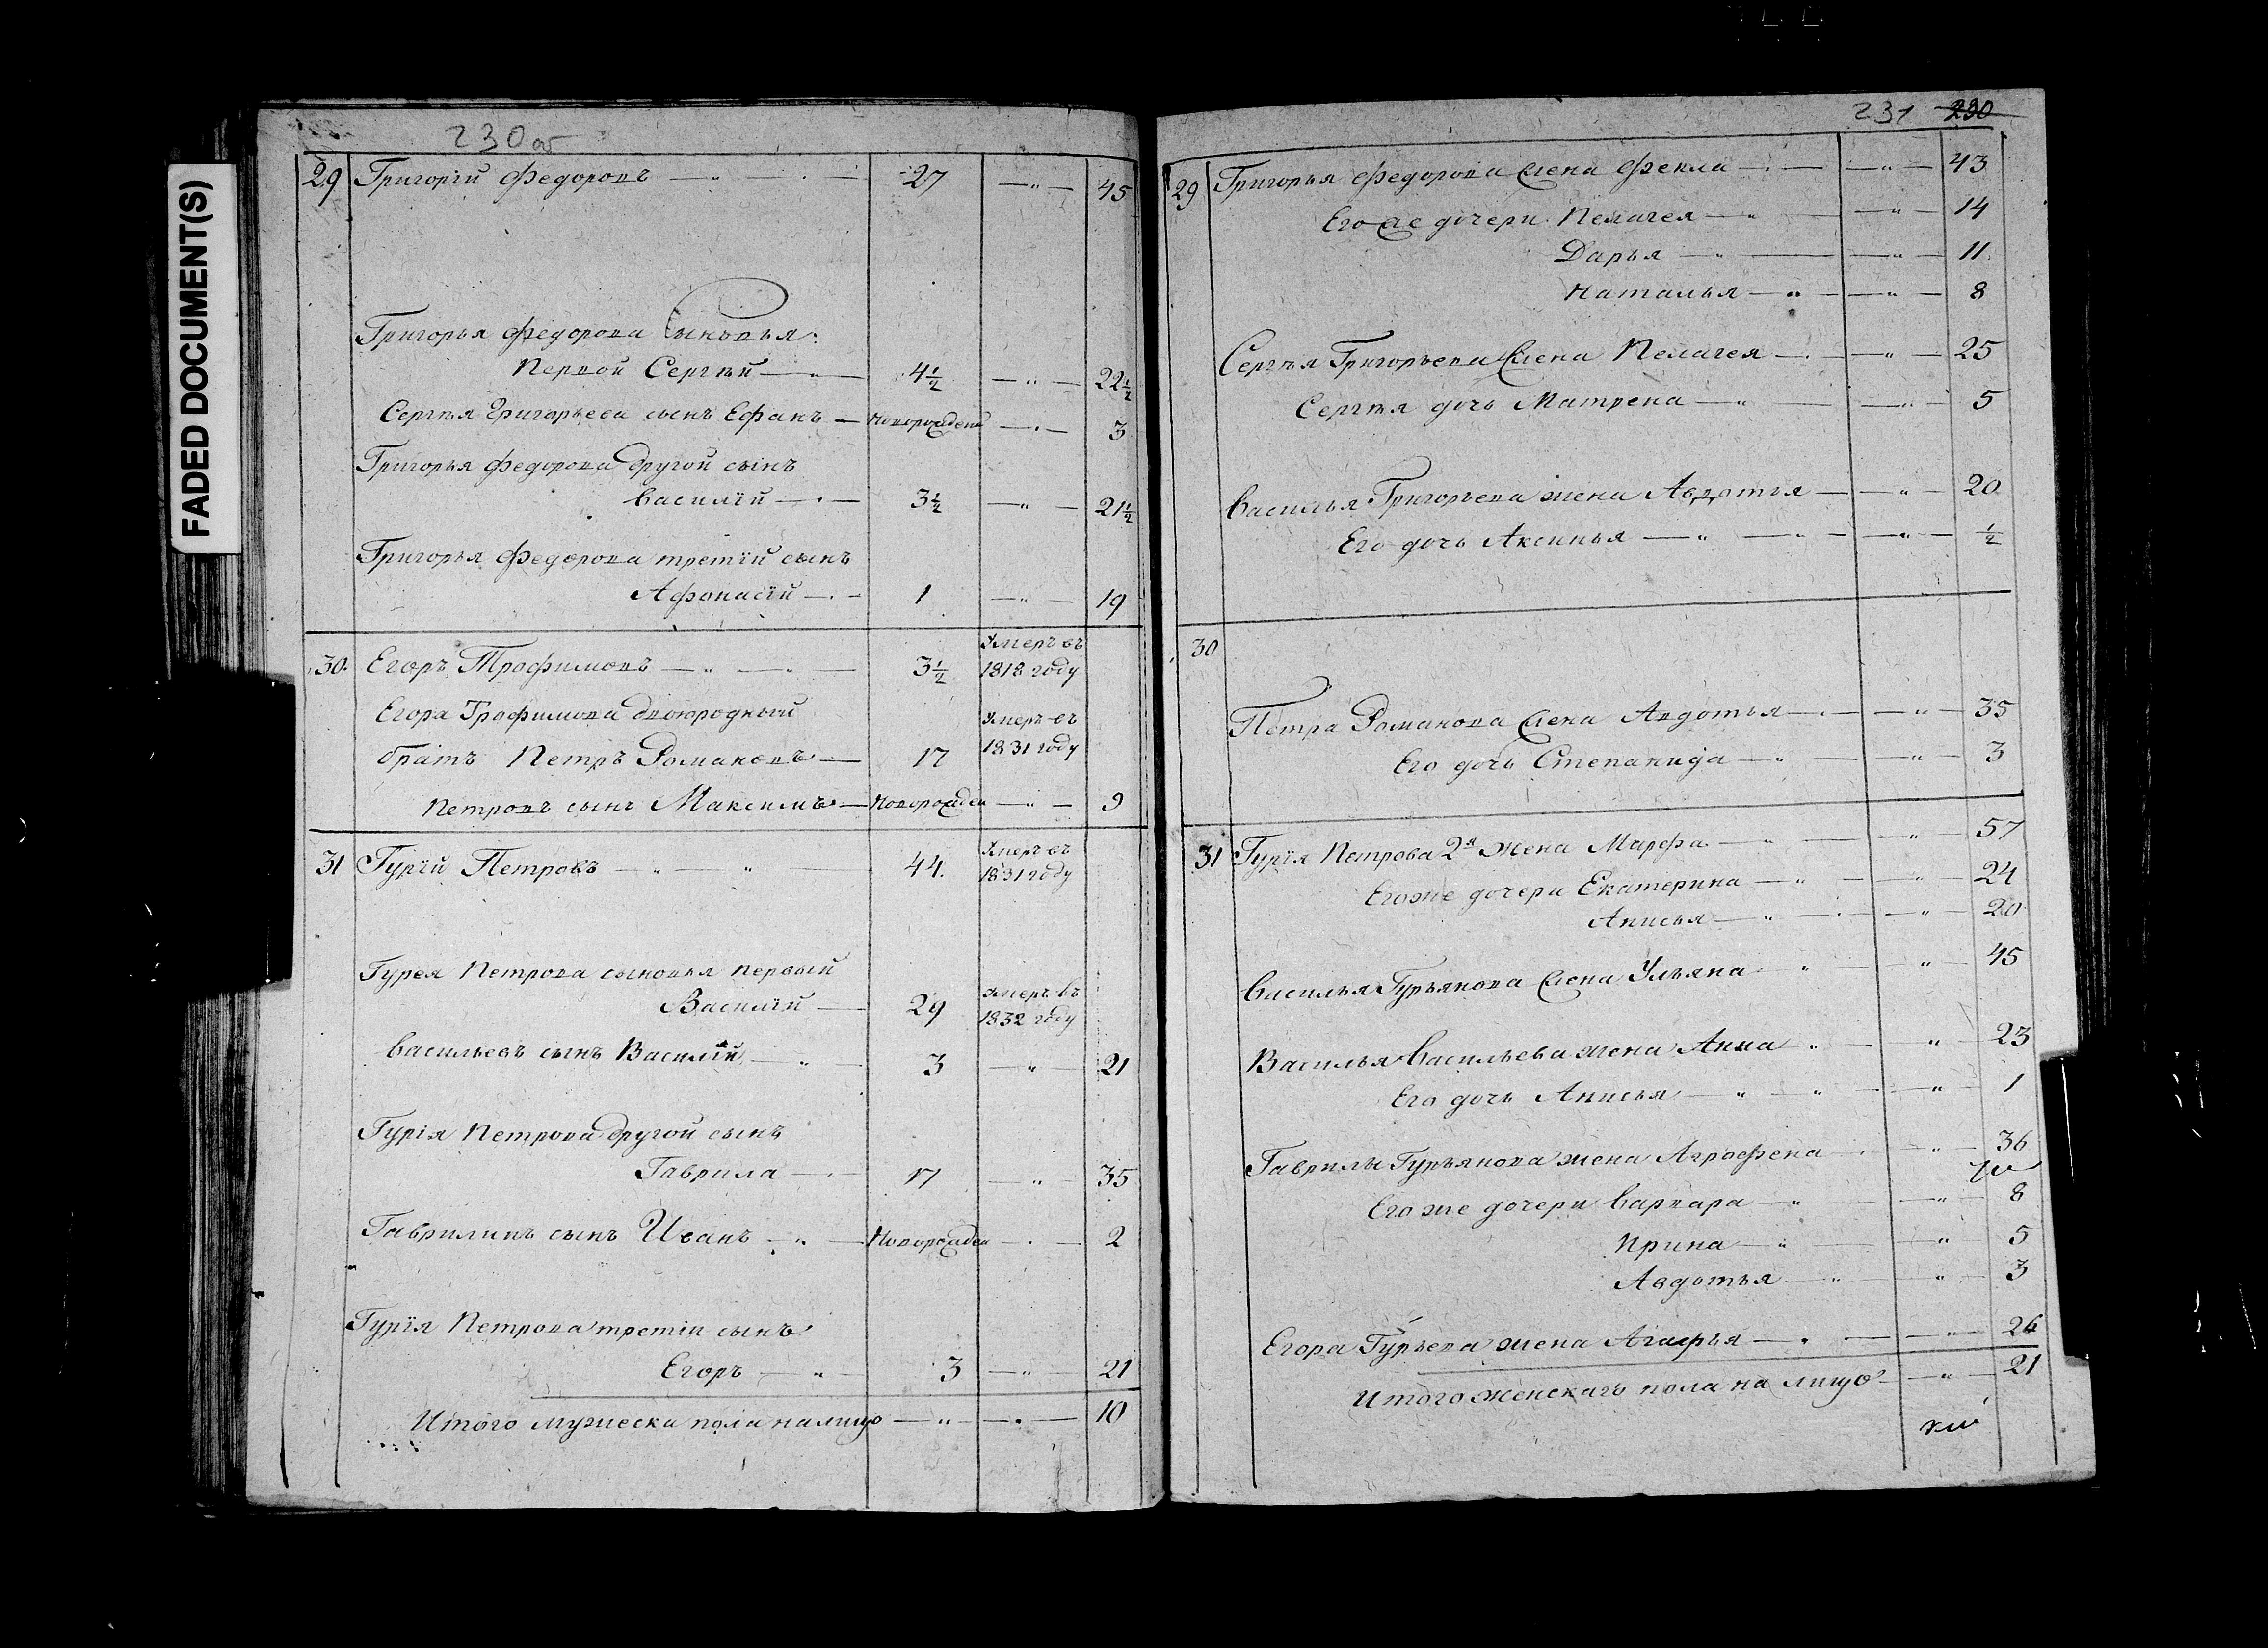 FADED DOCUMENT(S)
230об
29 Григорій Федоровъ — " — 27 — " — 45
Григорья Федорова Сыновья:
Первой Сергѣй — " — 4½ — " — 22½
Сергѣя Григорьева сынъ Ефанъ — новорожденъ — " — 3
Григорья Федорова другой сынъ
Василій — " — 3½ — " — 21½
Григорья Федорова третій сынъ
Афонасій — " — 1 — " — 19
30. Егоръ Трофимовъ — " — 3½ Умеръ въ 1818 году
Егора Трофимова двоюродный
братъ Петръ Романовъ — 17 Умеръ въ 1831 году
Петровъ сынъ Максимъ — новорожден — " — 9
31 Гурій Петровъ — " — " — 44. Умеръ въ 1831 году
Гурея Петрова сыновья первый
Василій — 29 Умеръ въ 1832 году
Васильевъ сынъ Василій — " — 3 — " — 21
Гурія Петрова другой сынъ
Гаврила — " — 17 — " — 35
Гаврилинъ сынъ Иванъ — " — Новорожден — " — 2
Гурія Петрова третій сынъ
Егоръ — " — 3 — " — 21
Итого мужеска пола на лицо — " — " — 10
231 230
29 Григорья Федорова жена Фекла — " — " — 43
Его же дочери Пелагея — " — " — 14
Дарья — " — " — 11
Наталья — " — " — 8
Сергѣя Григорьева жена Пелагея — " — " — 25
Сергѣя дочь Матрена — " — " — 5
Василья Григорьева жена Авдотья — " — 20
Его дочь Аксинья — " — " — " — ½
30
Петра Романова жена Авдотья — " — " — 35
Его дочь Степанида — " — " — 3
31 Гурія Петрова 2я жена Марфа — " — " — 57
Его же дочери Екатерина — " — " — 24
Анисья — " — " — 20
Василья Гурьянова жена Ульяна — " — " — 45
Василья Васильева жена Анна " — " — 23
Его дочь Анисья — " — " — " — 1
Гаврилы Гурьянова жена Аграфена — " — " — 36
Его же дочери Варвара — " — " — 8
Ирина — " — " — 5
Авдотья — " — " — 3
Егора Гурьева жена Агафья — " — " — 26
Итого женскаго пола на лицо — " — 21